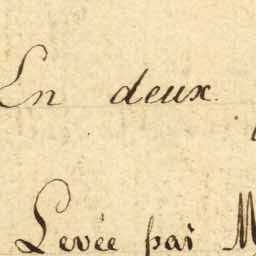 En deux.
Levée par M